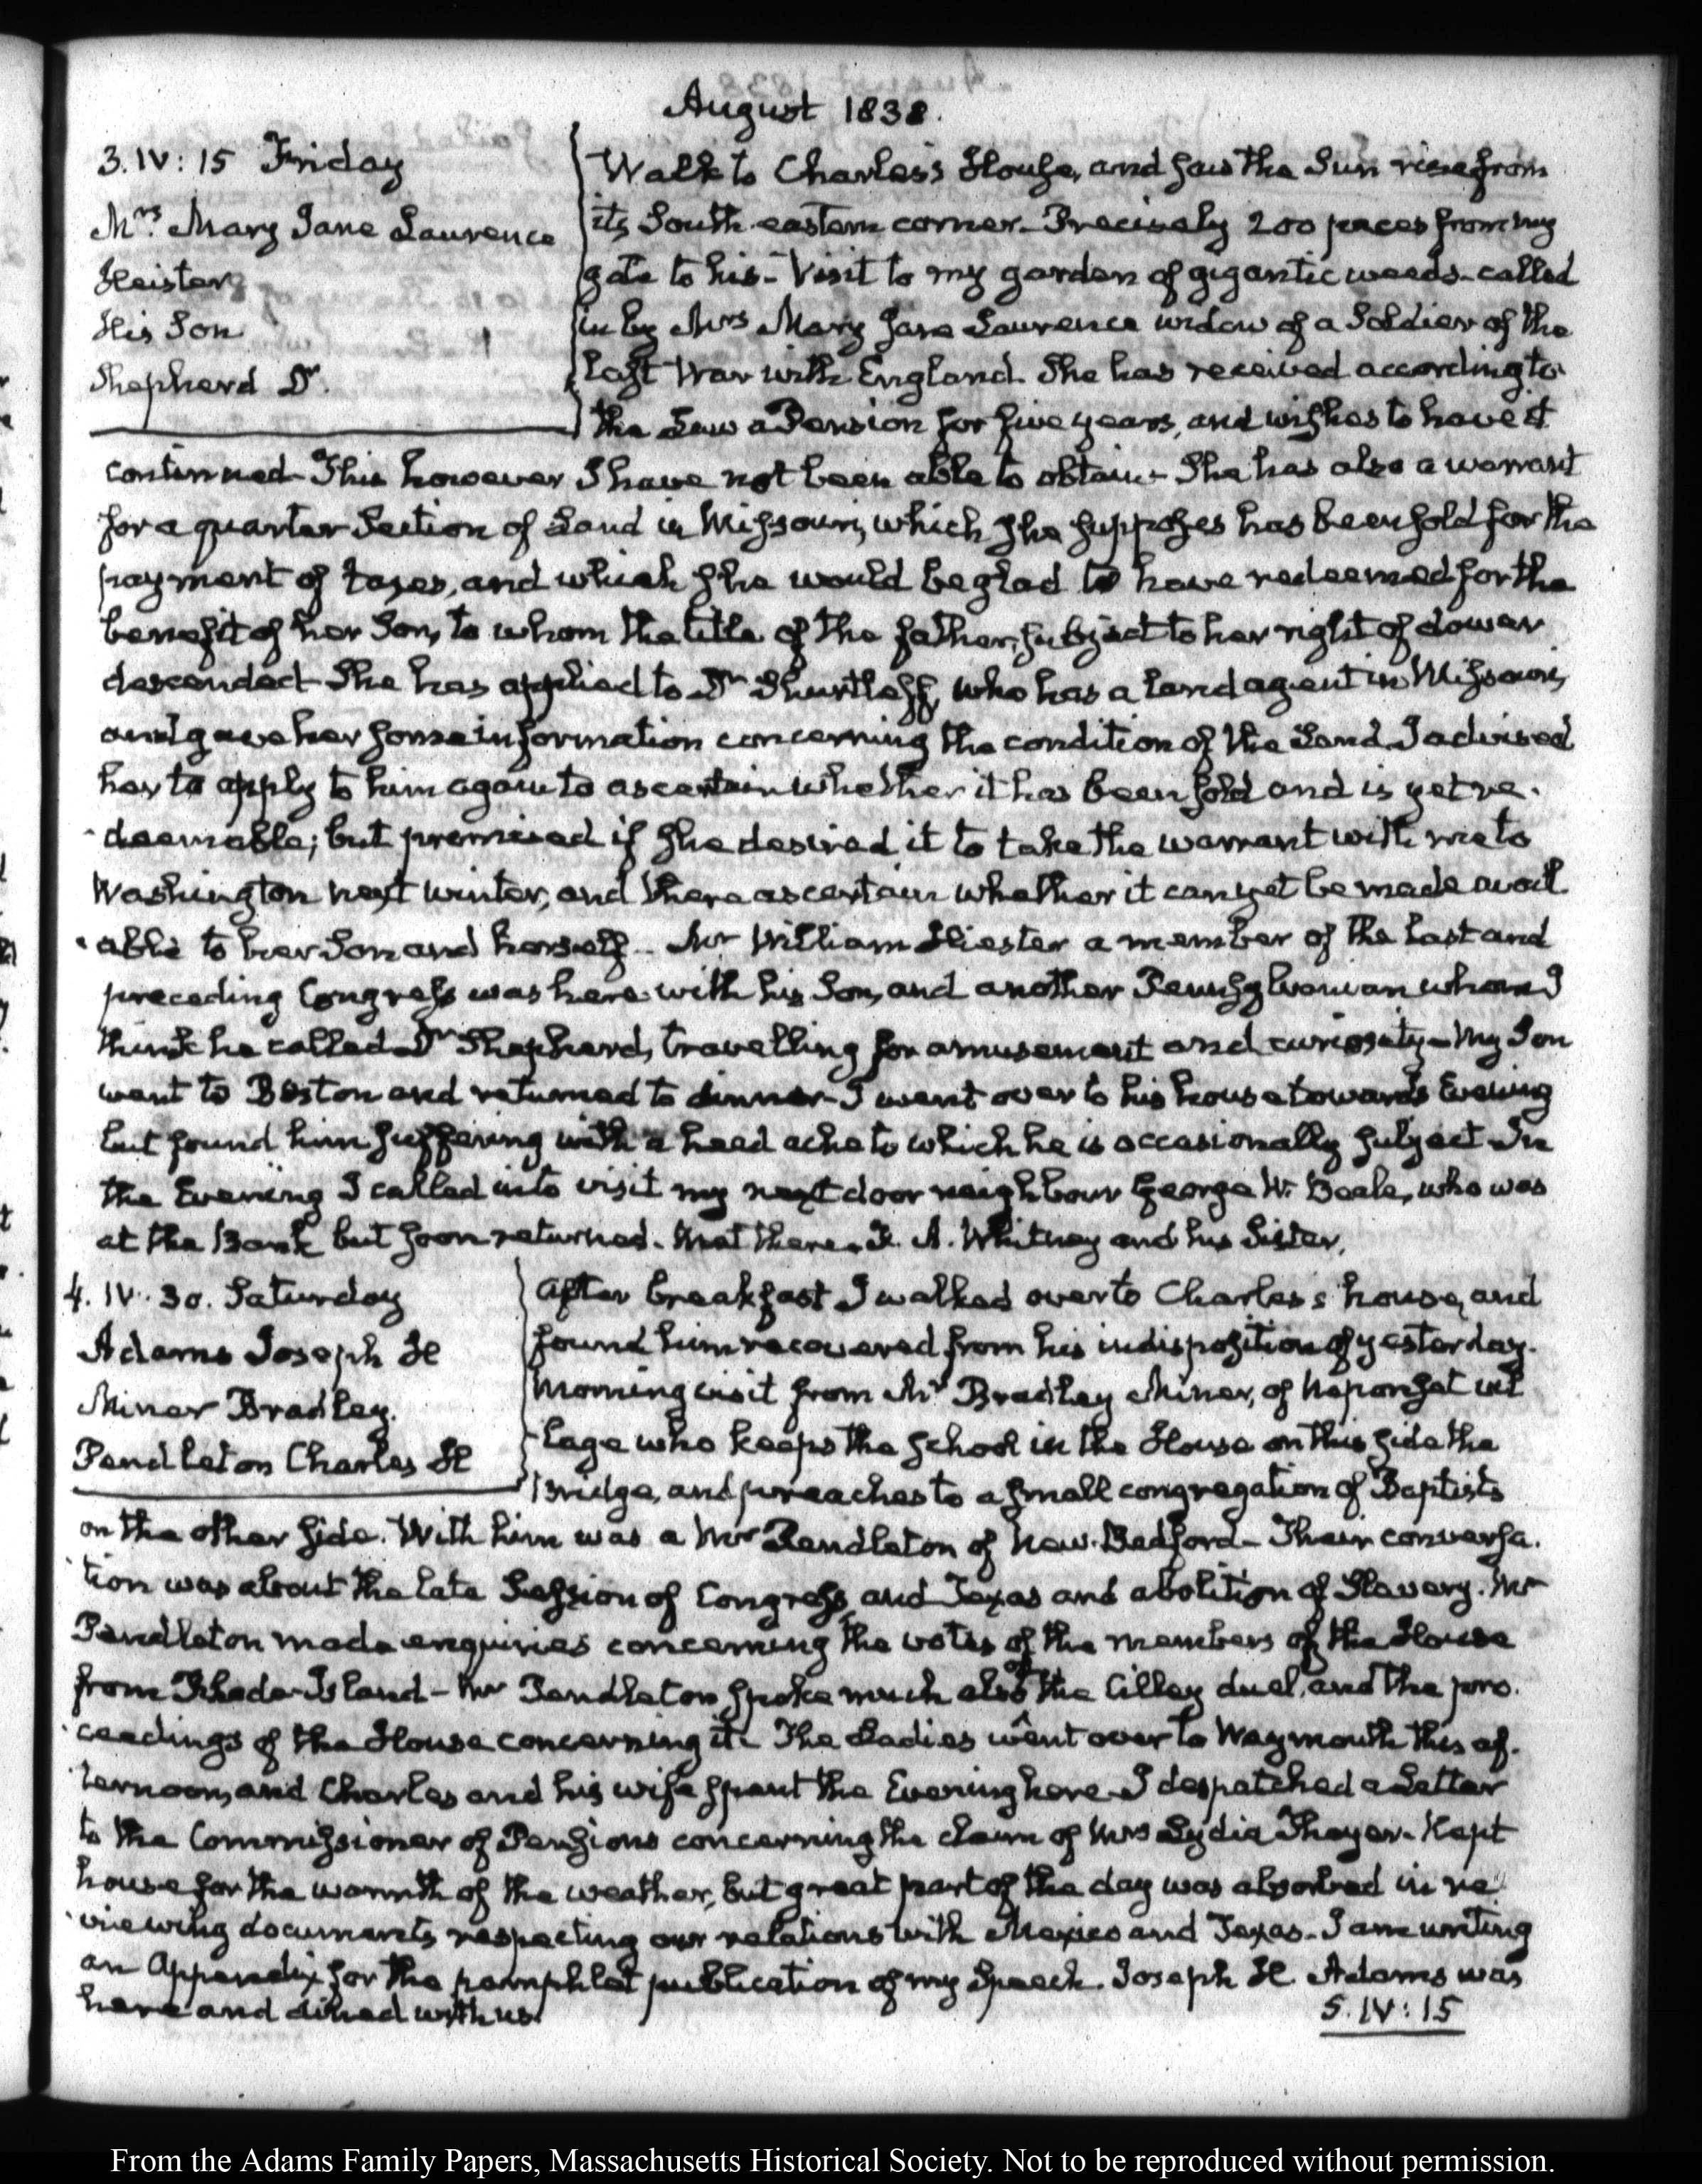 August 1838.
3. IV: 15 Friday
Mrs. Mary Jane Laurence
Heister
His Son
Shepherd Dr.
Walk to Charles's House, and saw the Sun rise from
its South eastern corner. Precisely 200 paces from my
gate to his - Visit to my garden of gigantic weeds - called
in by Mrs Mary Jane Laurence widow of a Soldier of the
last War with England. She has received according to
the Law a Pension for five years, and wishes to have it
continued - This however I have not been able to obtain - She has also a warrant
for a quarter Section of Land in Missouri, which she supposes has been sold for the
payment of taxes, and which she would be glad to have redeemed for the
benefit of her Son, to whom the title of the father, subject to her right of dower
descended - She has applied to Dr Shurtleff, who has a land agent in Missouri,
and gave her some information concerning the condition of the Land. I advised
her to apply to him again to ascertain whether it has been sold and is yet re-
deemable; but promised if she desired it to take the warrant with me to
Washington next winter, and there ascertain whether it can yet be made avail-
able to her Son and herself - Mr William Hiester a member of the last and
preceding Congress was here with his Son, and another Pennsylvanian whom I
think he called Dr Shepherd, travelling for amusement and curiosity - My Son
went to Boston and returned to dinner - I went over to his house towards Evening
but found him suffering with a head ache to which he is occasionally subject - In
the Evening I called in to visit my next door neighbour George W. Beale, who was
at the Bank but soon returned. Met there F. A. Whitney and his Sister.
4. IV. 30. Saturday
Adams Joseph H
Miner Bradley.
Pendleton Charles H
After breakfast I walked over to Charles's house, and
found him recovered from his indisposition of yesterday.
Morning visit from Mr Bradley Miner, of Neponset vil
lage who keeps the school in the House on this side the
Bridge, and preaches to a small congregation of Baptists
on the other side. With him was a Mr Pendleton of New-Bedford - Their conversa-
tion was about the late Session of Congress, and Texas and abolition of Slavery. Mr
Pendleton made enquiries concerning the votes of the members of the House
from Rhode-Island - Mr Pendleton spoke much also of the Cilley duel, and the pro-
ceedings of the House concerning it. The Ladies went over to Weymouth this af-
ternoon, and Charles and his wife spent the Evening here - I despatched a Letter
to the Commissioner of Pensions concerning the claim of Mrs Lydia Thayer - Kept
house for the warmth of the weather, but great part of the day was absorbed in re-
viewing documents respecting our relations with Mexico and Texas - I am writing
an Appendix for the pamphlet publication of my Speech. Joseph H Adams was
here and dined with us.
5. IV: 15
From the Adams Family Papers, Massachusetts Historical Society. Not to be reproduced without permission.